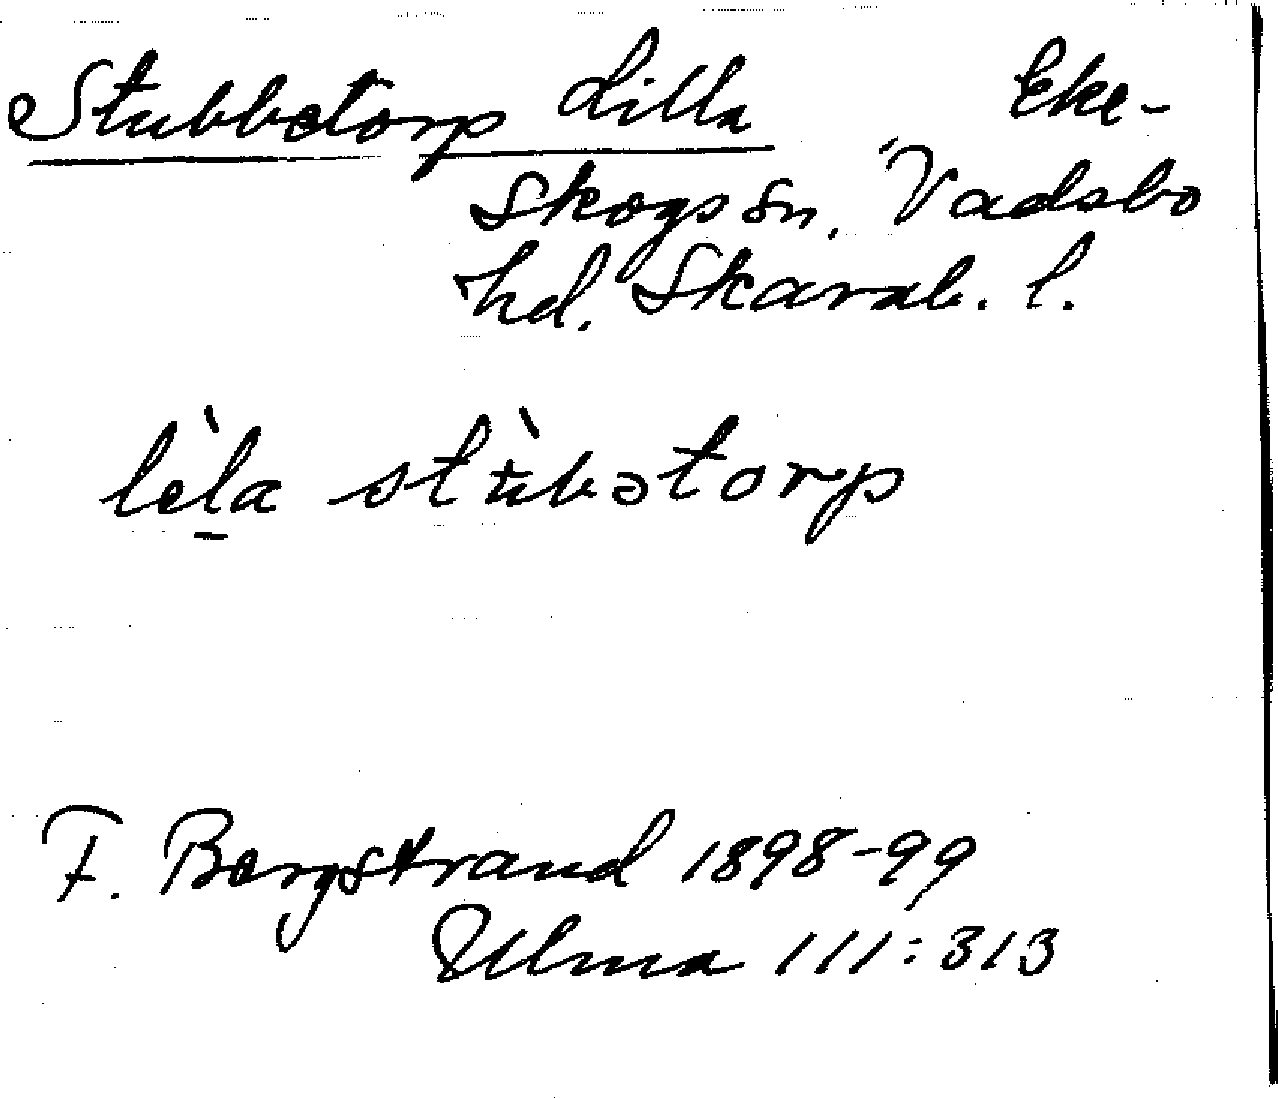 Stubbetorp Lilla Eke-
Skogs sn, Vadsbo
hd. Skarab. l.
lèl̠a stʉ̀bətorp
F. Bergstrand 1898-99
Ulma 111:313